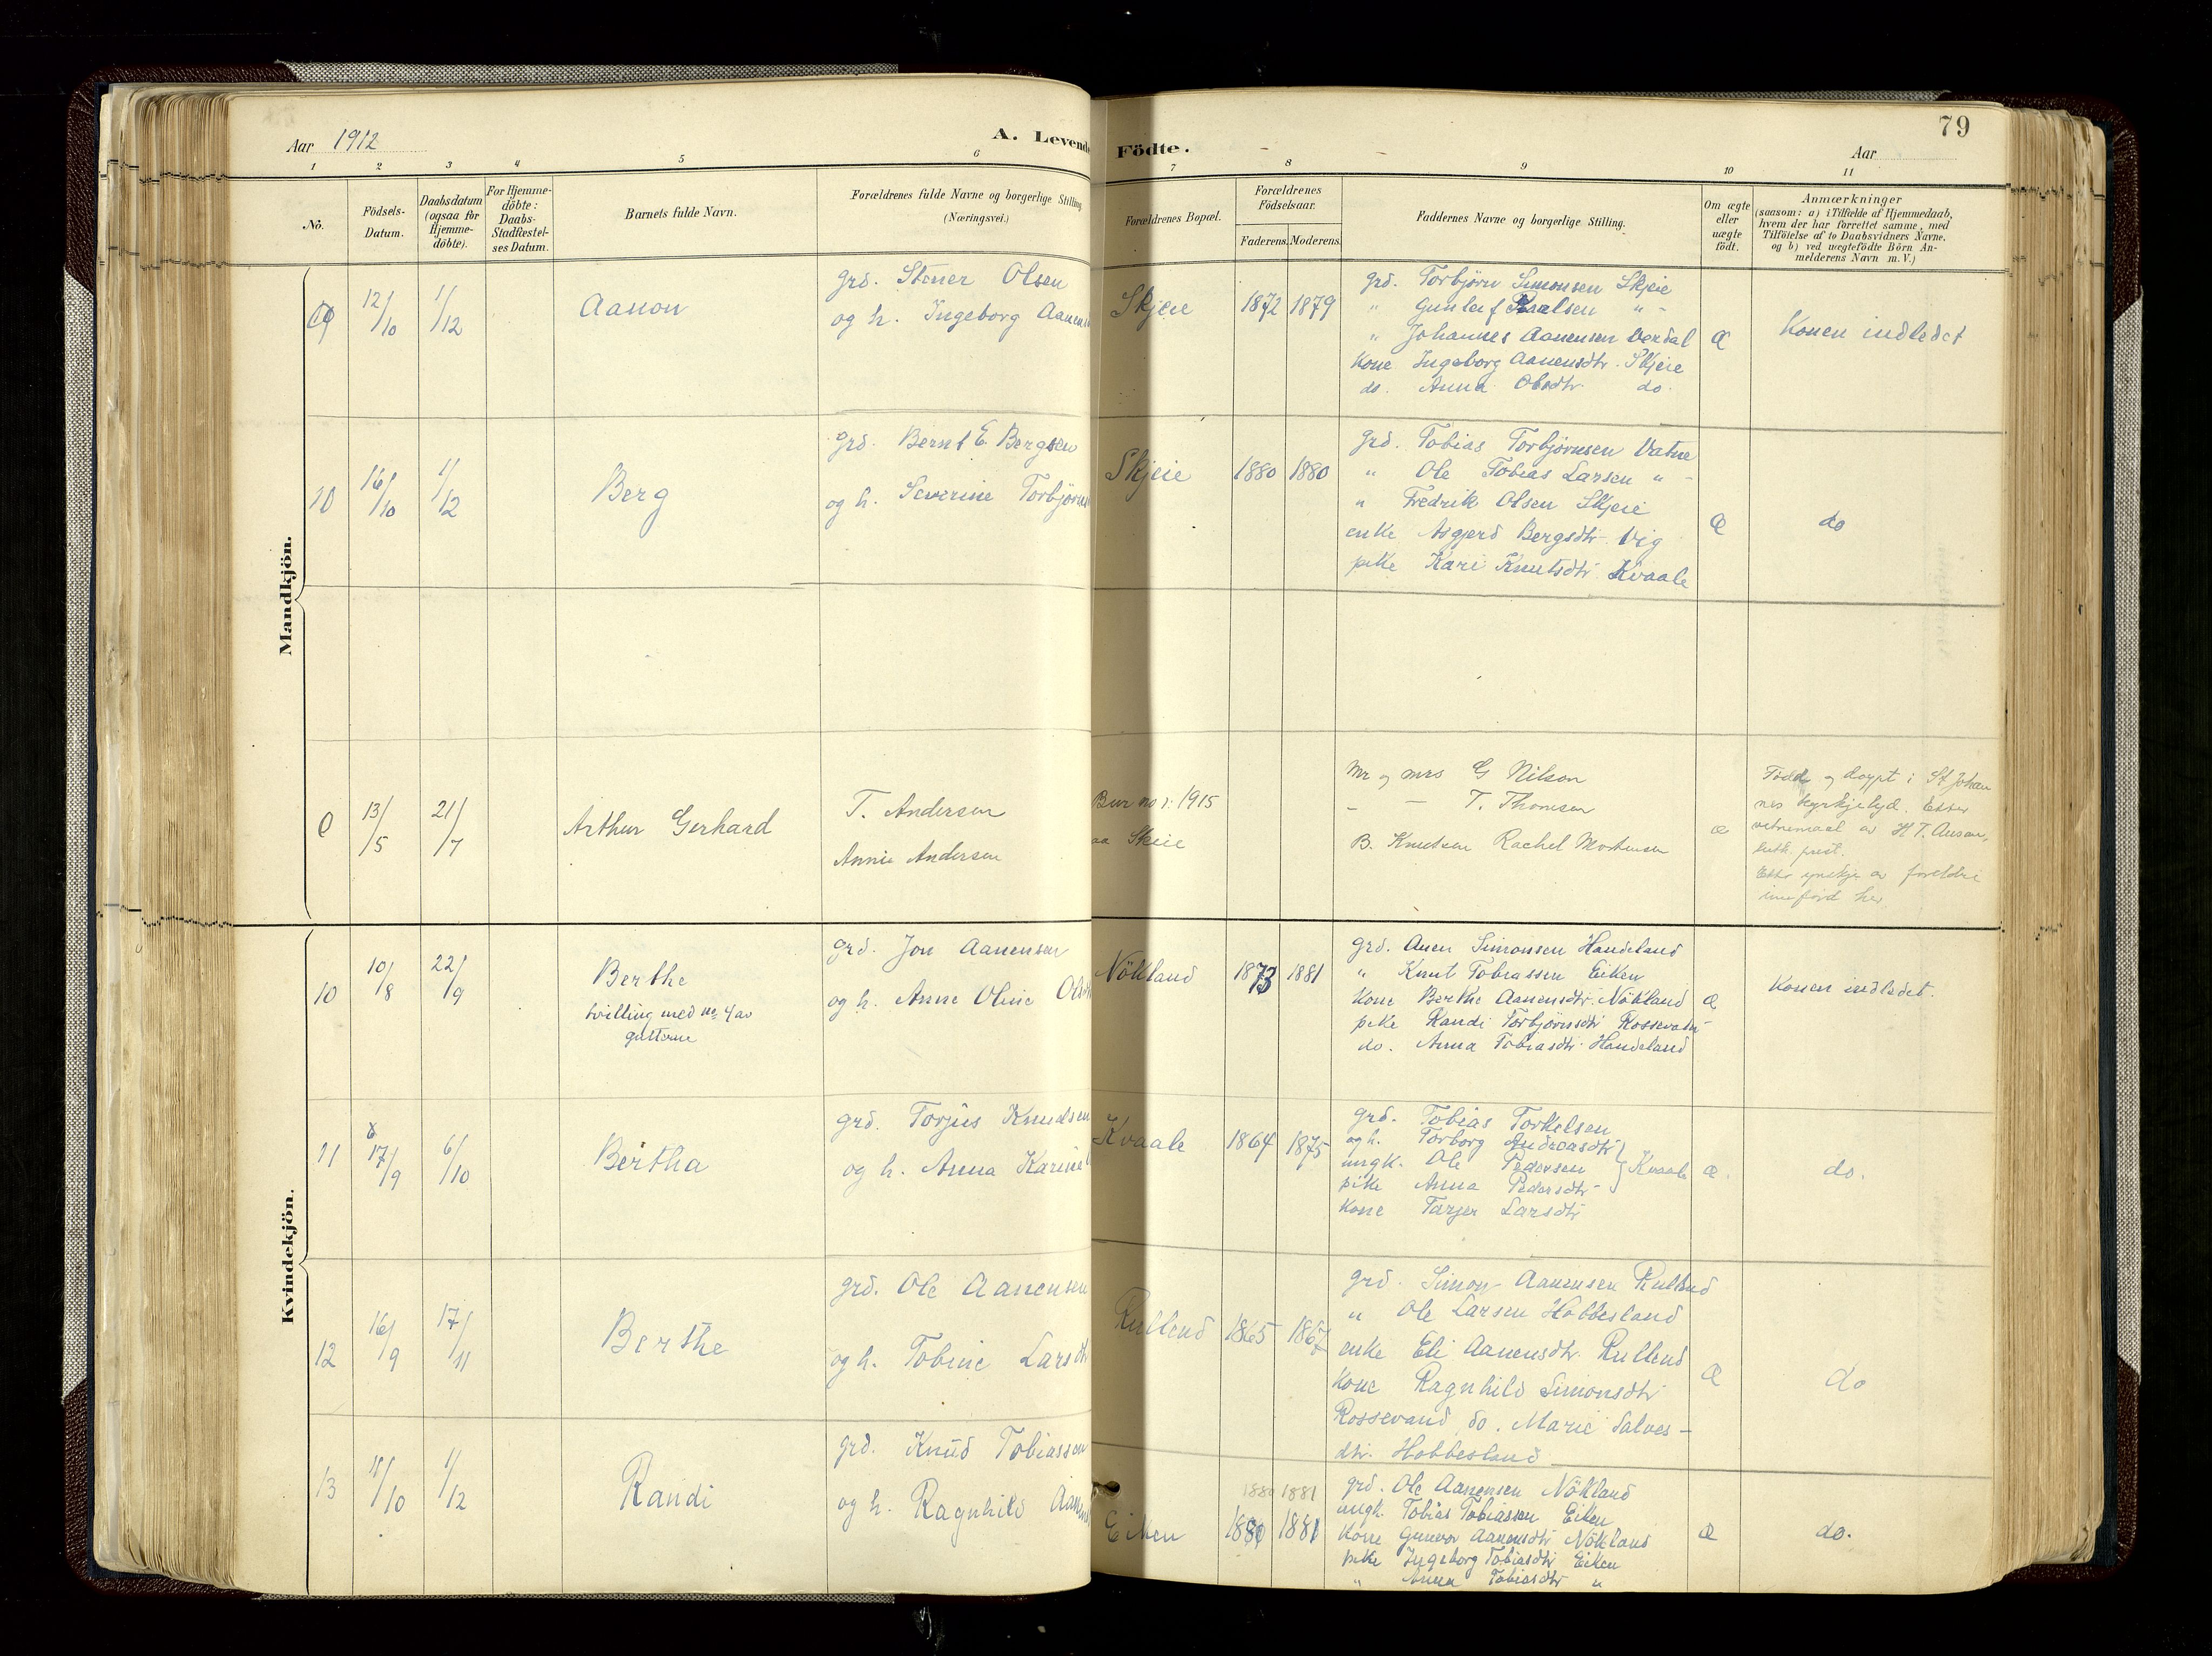 79
Aar 1912
A. Levende Födte.
Aar
1 2 3 4 5 6 7 8 9 10 11
No.
Födsels-Datum.
Daabsdatum (ogsaa for Hjemme-döbte).
For Hjemme-döbte: Daabs-Stadfæstel-ses Datum.
Barnets fulde Navn.
Forældrenes fulde Navne og borgerlige Stilling
(Næringsvei.)
Forældrenes Bopæl.
Forældrenes Födselsaar.
Faderens. Moderens.
Faddernes Navne og borgerlige Stilling.
Om ægte eller uægte födt.
Anmærkninger
(saasom: a) i Tilfælde af Hjemmedaab,
hvem der har forrettet samme, med
Tilföielse af to Daabsvidners Navne,
og b) ved uægtefödte Börn An-
melderens Navn m. V.)
Mandkjön.
9 12/10 1/12 Aanon
grd. Stener Olsen
og h. Ingeborg Aanens
Skjeie 1872 1879
grd. Torbjørn Simonsen Skjeie
" Gunleif Paalsen " -
" Johannes Aanensen Verdal
Kone Ingeborg Aanensdtr. Skjeie
do. Anna Olsdtr do.
Æ Konen indledet
10 16/10 1/12 Berg
grd. Bernt E. Bergsen
og h. Severine Torbjørns
Skjeie 1880 1880
grd. Tobias Torbjørnsen Vatne
" Ole Tobias Larsen " -
" Fredrik Olsen Skjeie
enke Asgjerd Bergsdtr. Vig
pike Kari Knutsdtr. Kvaale
Æ do
0 13/5 21/7 Arthur Gerhard
T. Andersen
Annie Andersen
Bur no i 1915
aa Skeie
Mr og mrs G Nilson
- - T. Thomsen
B. Knutsen Rachel Mortensen
æ
Född og døypt i St Johan
nes kyrkjelyd. Etter
vitnemaal av H. T.
luth. prest.
Etter ynskje av foreldre
innförd her.
Kvindekjön.
10 10/8 22/9 Berthe
tvilling med no 4 av
gutterne
grd. Jon Aanensen
og h. Anne Oline Olsdt
Nökland 1873 1881
grd. Anen Simonsen Handeland
" Knut Tobiassen Eiken
Kone Berthe Aanensdtr. Nökland
pike Randi Torbjørnsdtr Rossevatn
do. Anna Tobiasdtr. Handeland
Æ Konen indledet.
11 8 17/9 6/10 Bertha
grd. Torjus Knudsen
og h. Anna Karine
Kvaale 1864 1875
grd. Tobias Torkelsen
og h. Torborg Andreasdtr
ungk. Ole Pedersen } Kvaale
pike Anna Pedersdtr -
Kone Tarjer Larsdtr
æ. do.
12 16/9 17/11 Berthe
grd. Ole Aanensen
og h. Tobine Larsdtr
Rullend 1865 1867
grd. Simon Aanensen Rullend
" Ole Larsen Hobbesland
enke Eli Aanensdtr. Rullend
Kone Ragnhild Simonsdtr
Rossevand, do. Marie Salves-
dtr. Hobbesland
Æ do
13 11/10 1/12 Randi
grd. Knud Tobiassen
og h. Ragnhild Aanens
1880 1881
Eiken 1880 1881
grd. Ole Aanensen Nökland
ungk. Tobias Tobiassen Eiken
Kone Gunvor Aanensdtr Nökland
pike Ingeborg Tobiasdtr Eiken
" Anna Tobiasdtr "
æ do.